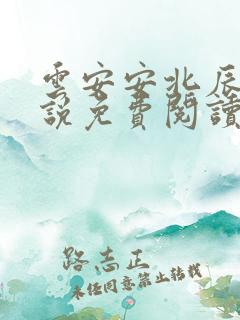 雲安安北辰
說免費閱讀
路志正
未經同意禁止轉載